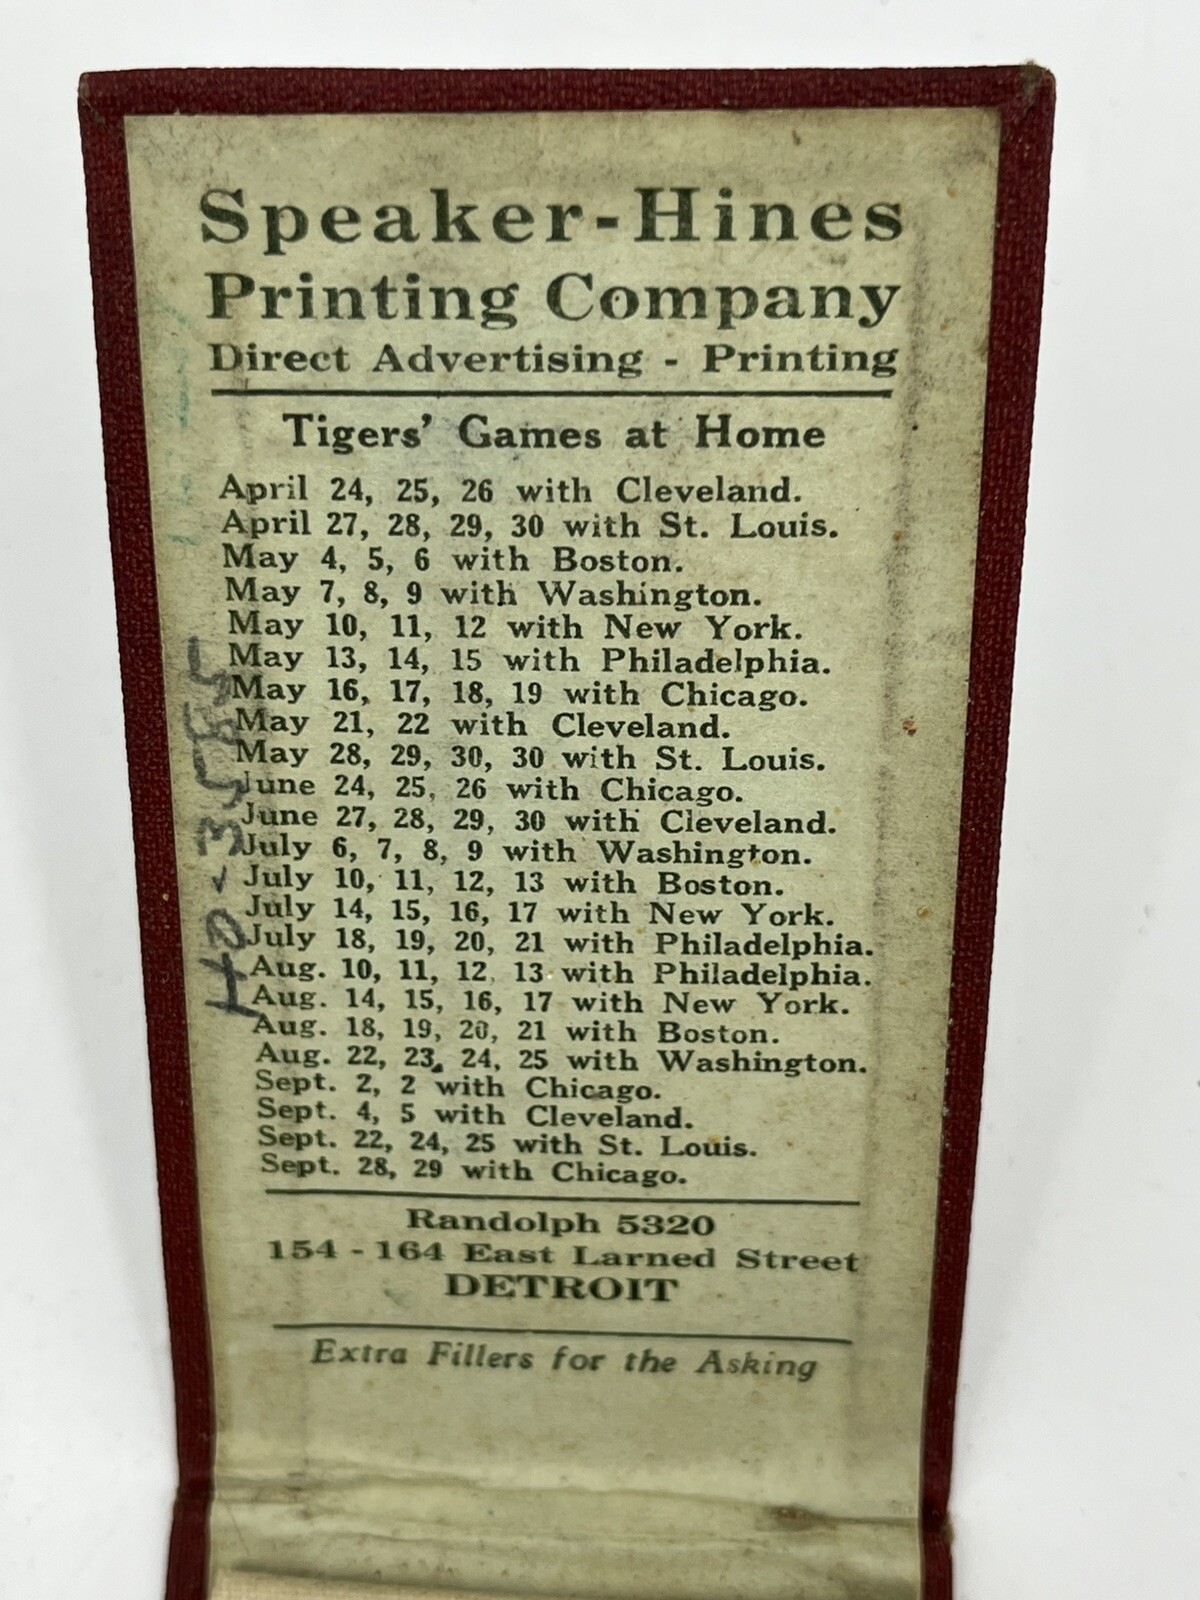 Speaker-Hines
Printing Company
Direct Advertising - Printing
Tigers' Games at Home
April 24, 25, 26 with Cleveland.
April 27, 28, 29, 30 with St. Louis.
May 4, 5, 6 with Boston.
May 7, 8, 9 with Washington.
May 10, 11, 12 with New York.
May 13, 14, 15 with Philadelphia.
May 16, 17, 18, 19 with Chicago.
May 21, 22 with Cleveland.
May 28, 29, 30, 30 with St. Louis.
June 24, 25, 26 with Chicago.
June 27, 28, 29, 30 with Cleveland.
July 6, 7, 8, 9 with Washington.
July 10, 11, 12, 13 with Boston.
July 14, 15, 16, 17 with New York.
July 18, 19, 20, 21 with Philadelphia.
Aug. 10, 11, 12, 13 with Philadelphia.
Aug. 14, 15, 16, 17 with New York.
Aug. 18, 19, 20, 21 with Boston.
Aug. 22, 23, 24, 25 with Washington.
Sept. 2, 2 with Chicago.
Sept. 4, 5 with Cleveland.
Sept. 22, 24, 25 with St. Louis.
Sept. 28, 29 with Chicago.
Randolph 5320
154 - 164 East Larned Street
DETROIT
Extra Fillers for the Asking